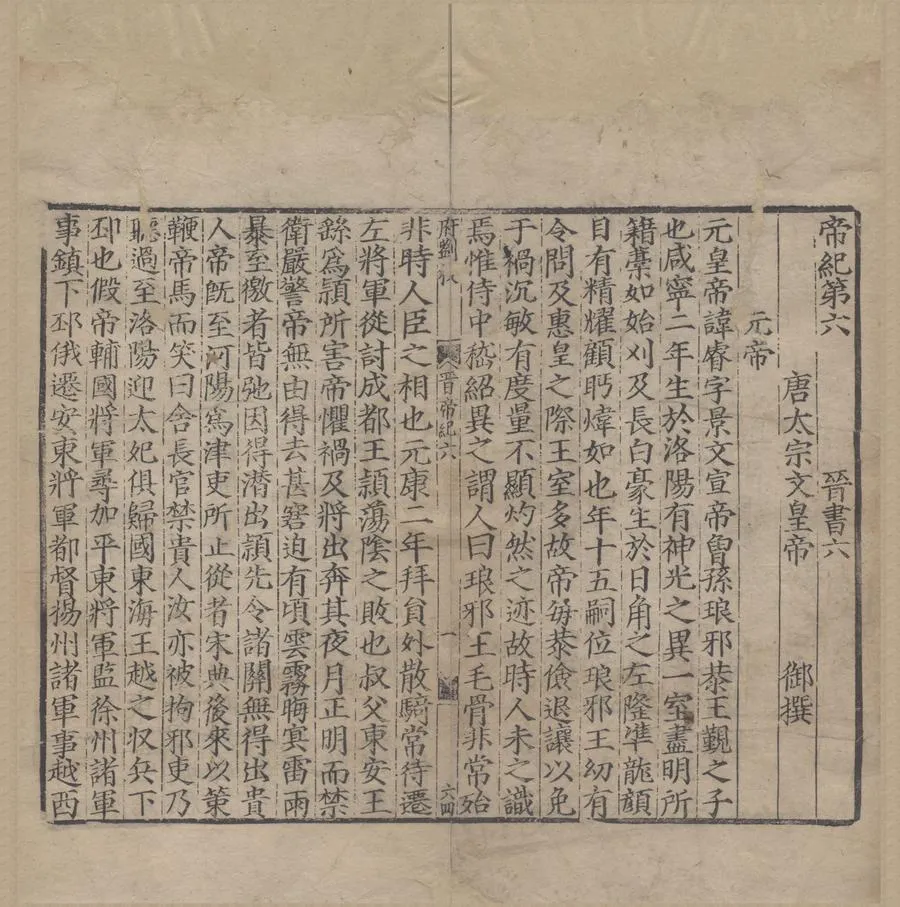 帝紀第六 晉書六
唐太宗文皇帝 御撰
元帝
元皇帝諱睿字景文宣帝曾孫琅邪恭王覲之子
也咸寧二年生於洛陽有神光之異一室盡明所
籍藁如始刈及長白豪生於日角之左隆準龍顔
目有精耀顧眄煒如也年十五嗣位琅邪王㓜有
令問及惠皇之際王室多故帝每恭儉退讓以免
于禍沉敏有度量不顯灼然之迹故時人未之識
焉惟侍中嵇紹異之謂人曰琅邪王毛骨非常殆
晉帝紀六 一 六四
非時人臣之相也元康二年拜貟外散騎常待遷
左將軍從討成都王頴蕩陰之敗也叔父東安王
繇爲頴所害帝懼禍及將出奔其夜月正明而禁
衛嚴警帝無由得去甚窘迫有頃雲霧晦㝠雷雨
暴至徼者皆弛因得潜出頴先令諸關無得出貴
人帝旣至河陽爲津吏所止從者宋典後來以策
鞭帝馬而笑曰舍長官禁貴人汝亦被拘邪吏乃
聽過至洛陽迎太妃俱歸國東海王越之収兵下
邳也假帝輔國將軍尋加平東將軍監徐州諸軍
事鎮下邳俄遷安東將軍都督揚州諸軍事越西